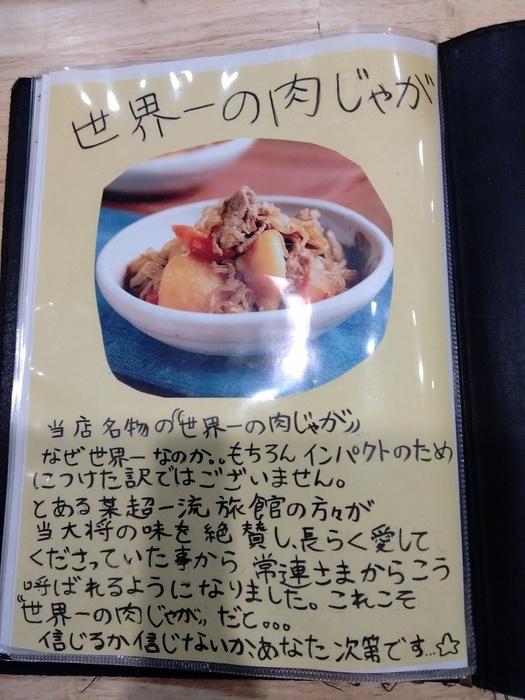 世界一の肉じゃが
当店名物の“世界一の肉じゃが”
なぜ世界一なのか。。もちろんインパクトのため
につけた訳ではございません。
とある某超一流旅館の方々が
当大将の味を絶賛し、長らく愛して
くださっていた事から常連さまからこう
呼ばれるようになりました。これこそ
“世界一の肉じゃが”だと。。。
信じるか信じないか、あなた次第です…☆